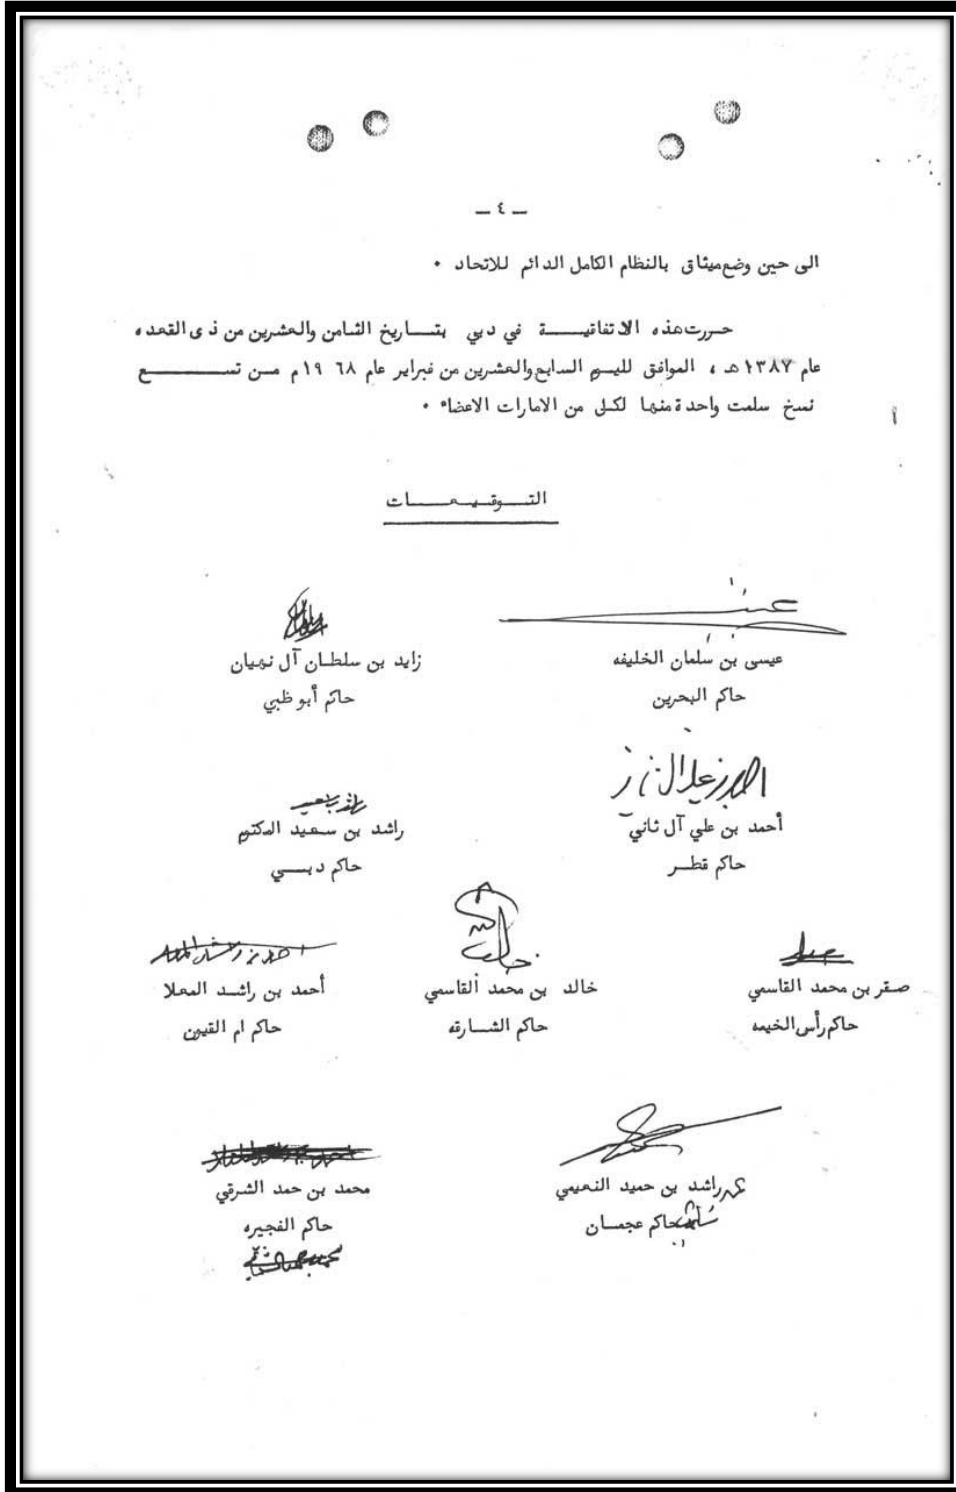 — ٤ —
الى حين وضع ميثاق بالنظام الكامل الدائم للاتحاد .
حـررت هذه الاتفاقيـــة في دبي بتــاريخ الثامن والعشرين من ذى القعده
عام ١٣٨٧ هـ ، الموافق لليوم السابع والعشرين من فبراير عام ١٩٦٨ م مـن تســـــع
نسخ سلمت واحدة منها لكل من الامارات الاعضاء .
التـــوقــيــعــــات
عيسى بن سلمان الخليفه
حاكم البحرين
زايد بن سلطـان آل نهيان
حاكم أبو ظبي
أحمد بن علي آل ثاني
حاكم قطــر
راشد بن سـعيد المكتوم
حاكم دبـــي
صقر بن محمد القاسمي
حاكم رأس الخيمه
خالد بن محمد القاسمي
حاكم الشــارقه
أحمد بن راشــد المعلا
حاكم ام القيون
راشد بن حميد النعيمي
حاكم عجمــان
محمد بن حمد الشرقي
حاكم الفجيره